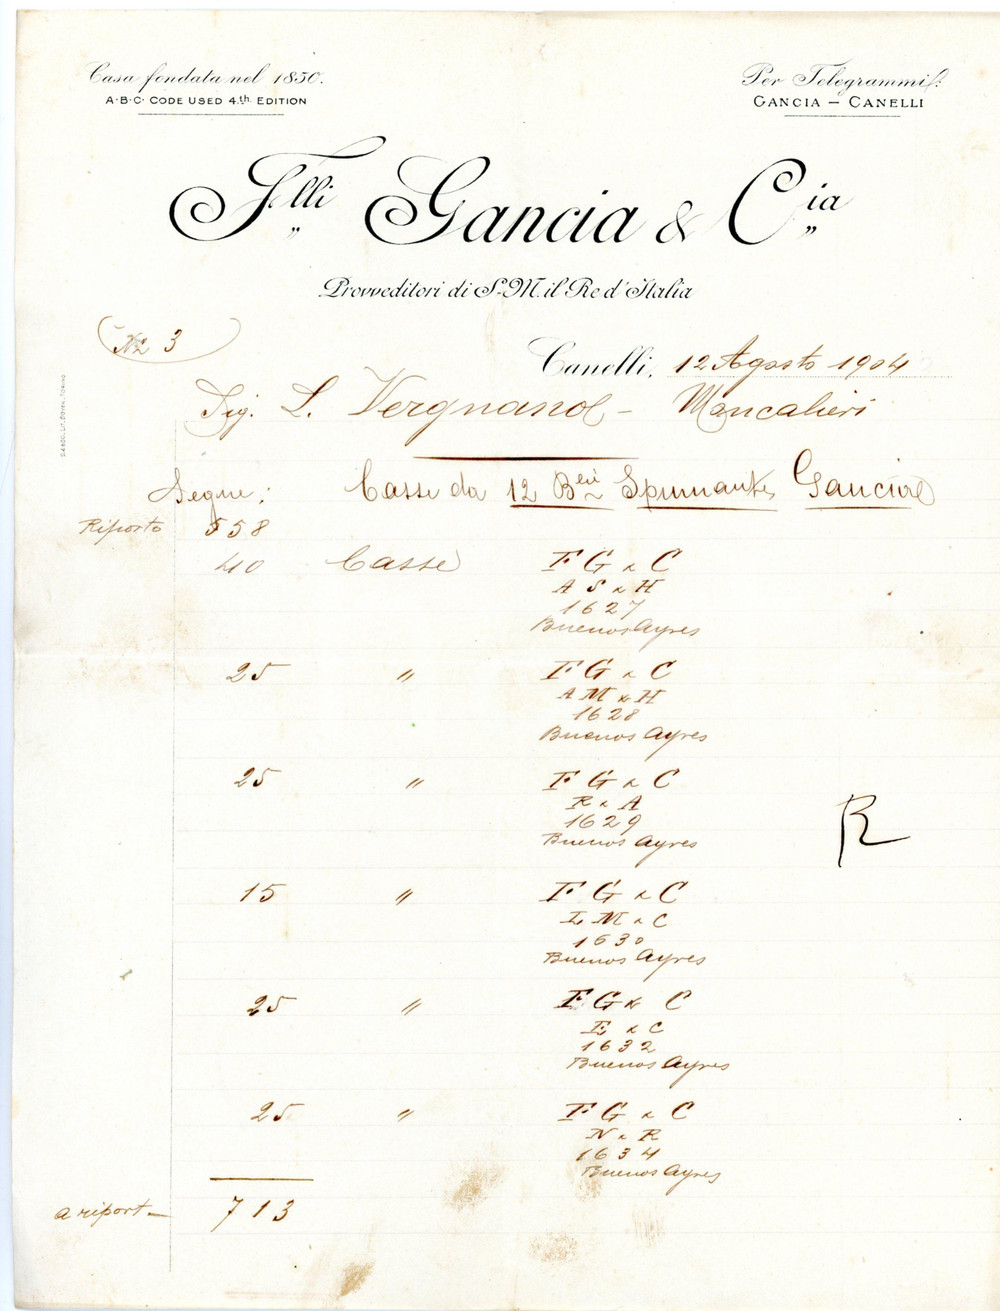 Casa fondata nel 1850.
A·B·C· CODE USED 4.th EDITION
Per Telegrammi:
GANCIA — CANELLI
F.lli Gancia & C.ia
Provveditori di S.M. il Re d'Italia
No 3
Canelli, 12 Agosto 1904
Sig. L. Vergnano - Moncalieri
Segue: Casse da 12 B.lie Spumante Gancia
Riporto 558
40 Casse F G & C
A S & H
1627
Buenos Ayres
25 " F G & C
A M & H
1628
Buenos Ayres
25 " F G & C
R & A
1629
Buenos Ayres
R
15 " F G & C
L M & C
1630
Buenos Ayres
25 " F G & C
E & C
1632
Buenos Ayres
25 " F G & C
N & R
1634
Buenos Ayres
a riport— 713